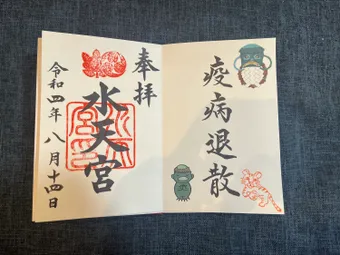 疫病退散
奉拝
水天宮
令和四年八月十四日